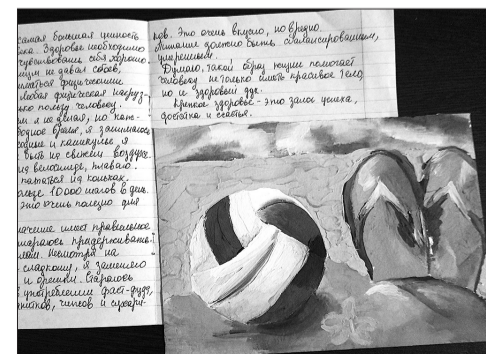 самая большая ценность
ка. Здоровье необходимо
чувствовать себя хорошо.
не давал сбоев,
физическими
Любая физическая нагруз-
пользу человеку.
я не делаю, но каж-
время, я занимаюсь
и каникулы я
быть на свежем воздухе
на велосипеде, плаваю.
кататься на коньках.
10000 шагов в день.
это очень полезно для
значение имеет правильное
стараюсь придерживать-
Несмотря на
сладкому, я заменяю
и орехами. Стараюсь
употреблении фаст-фуда,
чипсов и сухари-
ков. Это очень вкусно, но вредно.
Питание должно быть сбалансированным,
умеренным.
Думаю, такой образ жизни помогает
человеку не только иметь красивое тело,
но и здоровый дух.
Крепкое здоровье - это залог успеха,
достатка и счастья.